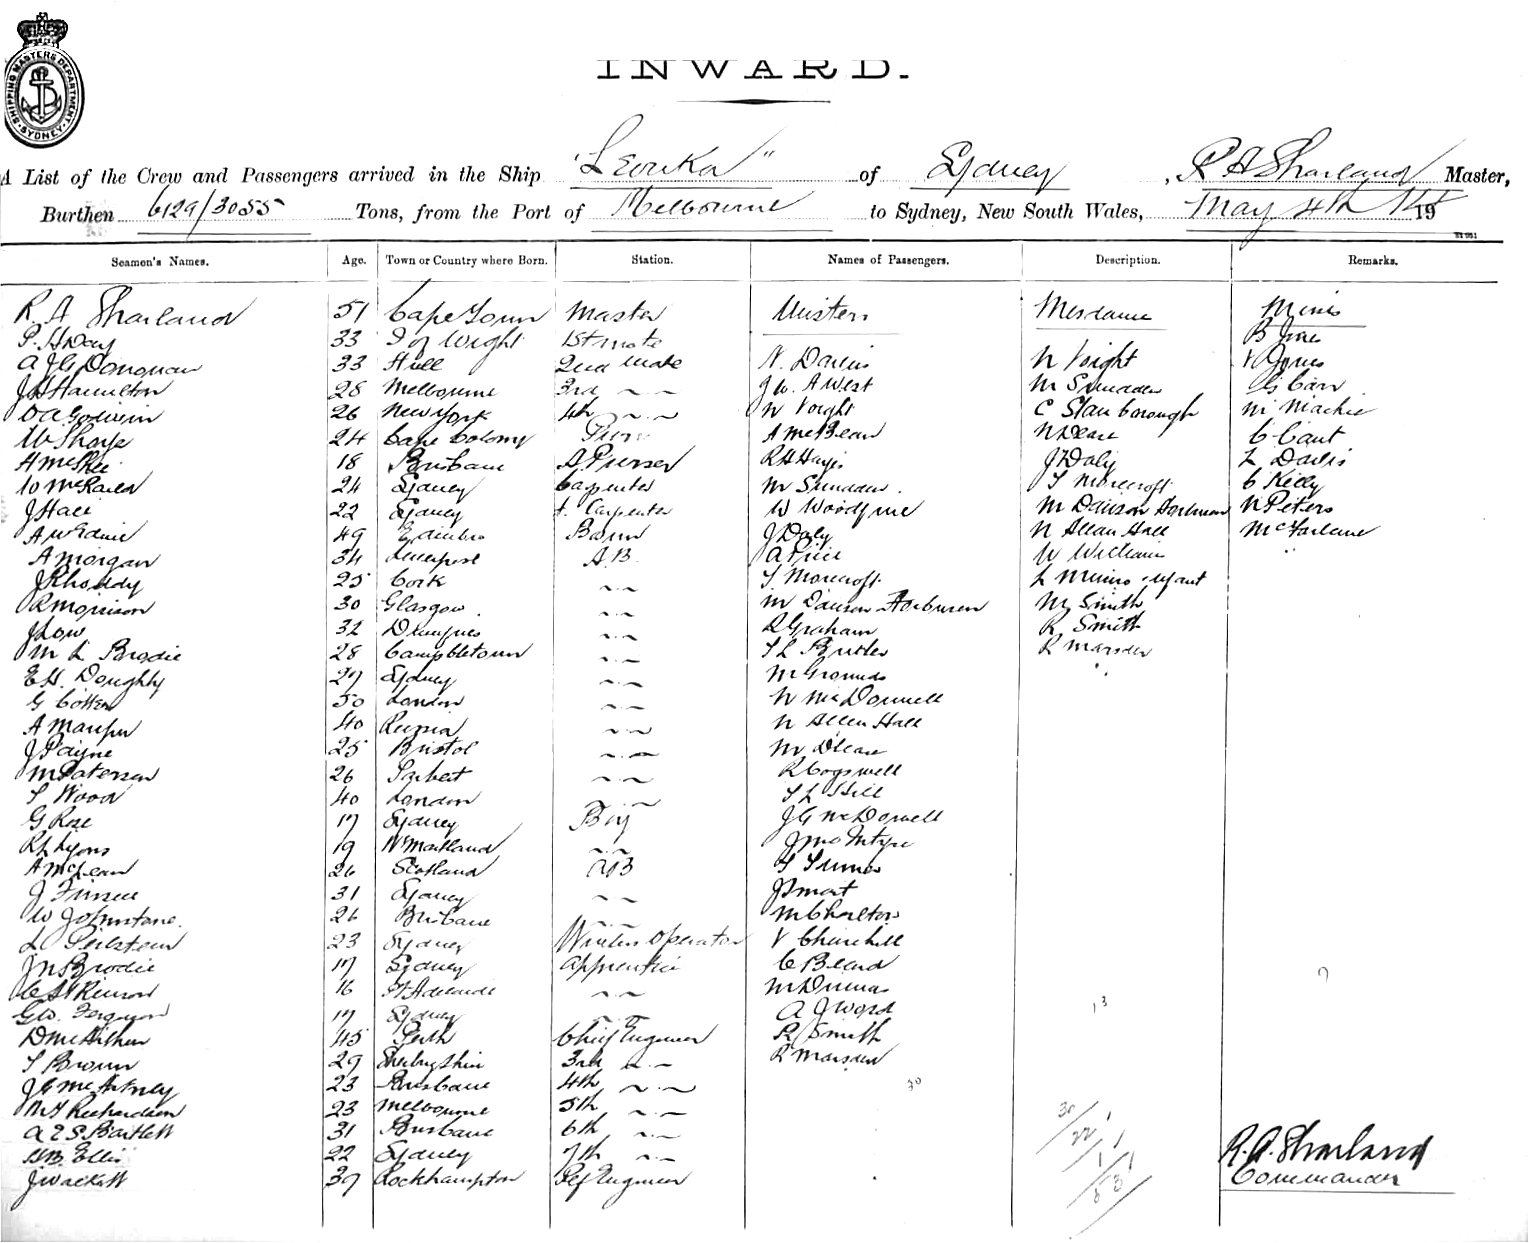 SHIPPING MASTERS DEPARTMENT SYDNEY
INWARD.
A List of the Crew and Passengers arrived in the Ship "Levuka" of Sydney, R A Sharland Master,
Burthen 6129/3055 Tons, from the Port of Melbourne to Sydney, New South Wales, May 4th 19
Seamen's Names. Age. Town or Country where Born. Station. Names of Passengers. Description. Remarks.
R. A Sharland 51 Cape Town Master Misters Mesdames Misses
P. H Day 33 I of Wight 1st mate B Jones
A J G Donovan 33 Hull 2nd Mate N. Davies N Voight V Jones
J H Hamilton 28 Melbourne 3rd ~ ~ J W. A West M Snadden G Carr
Godwin 26 New York 4th ~ ~ N Voight C Stanborough M Mackie
W Sharp 24 Cape Colony A McBean N Dease C Cant
H McPhee 18 Brisbane A. Purser R H Hayes J Daly L Davis
24 Sydney Carpenter M Snadden. S Morecroft C Kelly
J Hall 22 Sydney Carpenter W Woodfine M Davison N Peters
49 Edinbro Bosun J Daly N Allan Hall McFarlane
A Morgan 34 Liverpool A.B. A Price W William
J Rhoddy 25 Cork ~ ~ S Morecroft L Munro infant
R Morrison 30 Glasgow. ~ ~ M Davison M Smith
J Low 32 ~ ~ R Graham R Smith
M L Brodie 28 Campbletown ~ ~ S L Butler R Marsden
E H. Doughty 27 Sydney ~ ~ M Grounds
G Cotten 50 London ~ ~ N McDonnell
A 40 Russia ~ ~ N Allen Hall
J Payne 25 Bristol ~ ~ M Dease
M Paterson 26 Tarbert ~ ~ R Cogswell
S Wood 40 London ~ S L Hill
G Rose 17 Sydney Boy J G McDowell
R L Lyons 19 W Maitland ~ ~ J McIntyre
A McLean 26 Scotland AB S Turner
J 31 Sydney ~ ~ J Smart
W Johnstone. 26 Brisbane ~ ~ M Charlton
L 23 Sydney Wireless Operator V Churchill
J N Brodie 17 Sydney Apprentice C Beard
16 Pt Adelaide ~ ~ M
G W. Ferguson 17 Sydney ~ ~ A J Word
D McAithur 45 Perth Chief Engineer R Smith
S Brown 29 Derbyshire 3rd ~ ~ R Marsden
23 Brisbane 4th ~ ~ 30
Richardson 23 Melbourne 5th ~ ~
A E S. Bartlett 31 Brisbane 6th ~ ~
Ellis 22 Sydney 7th ~ ~ R. A. Sharland
J Wackett 39 Rockhampton Ref Engineer Commander